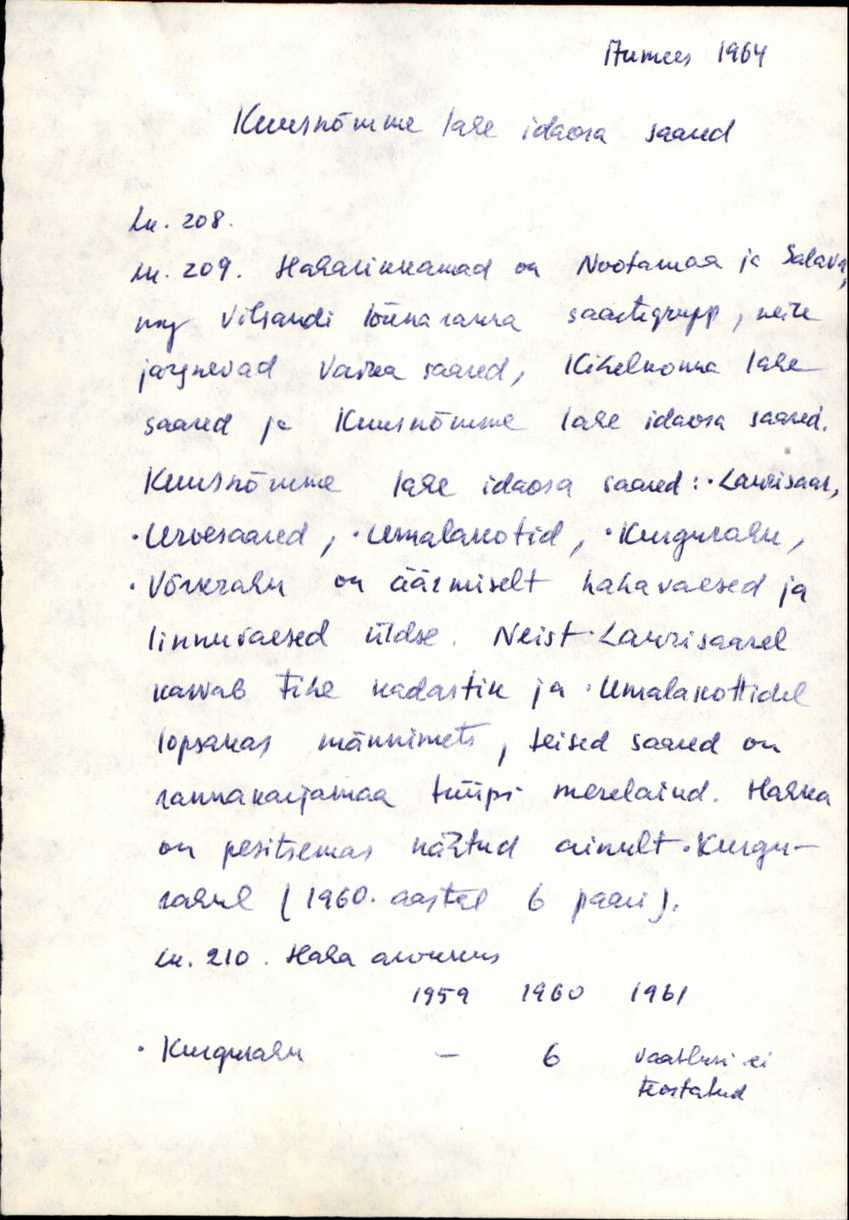 Aumees 1964
Kuusnõmme lahe idaosa saared
Lk. 208.
Lk. 209. Haharikkamad on Nootamaa ja Salava,
ning Vilsandi lõunaranna saartegrupp, neile
järgnevad Vaika saared, Kihelkonna lahe
saared ja Kuusnõmme lahe idaosa saared.
Kuusnõmme lahe idaosa saared: · Laurisaar,
· Urvesaared, · Umalakotid, · Kurgurahu,
· Võrkrahu on äärmiselt hahavaesed ja
linnuvaesed üldse. Neist · Laurisaarel
kasvab tihe kadastik ja · Umalakottidel
lopsakas männimets, teised saared on
rannakarjamaa tüüpi merelaiud. Hahka
on pesitsemas nähtud ainult · Kurgu-
rahul (1960. aastal 6 paari).
Lk. 210. Haha arvukus
1959 1960 1961
· Kurgurahu – 6 vaatlusi ei
teostatud